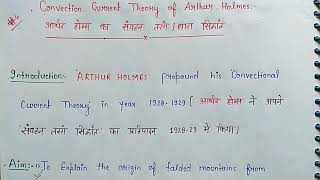 Convection Current Theory of Arthur Holmes:-
आर्थर होम्स का संवहन तरंग/धारा सिद्धांत
Introduction:- 'ARTHUR HOLMES' propound his 'Convectional
Current Theory' in year 1928-1929 [आर्थर होम्स ने अपने
'संवहन तरंग सिद्धांत' का प्रतिपादन 1928-29 में किया]
Aim:- To Explain the origin of folded mountains from